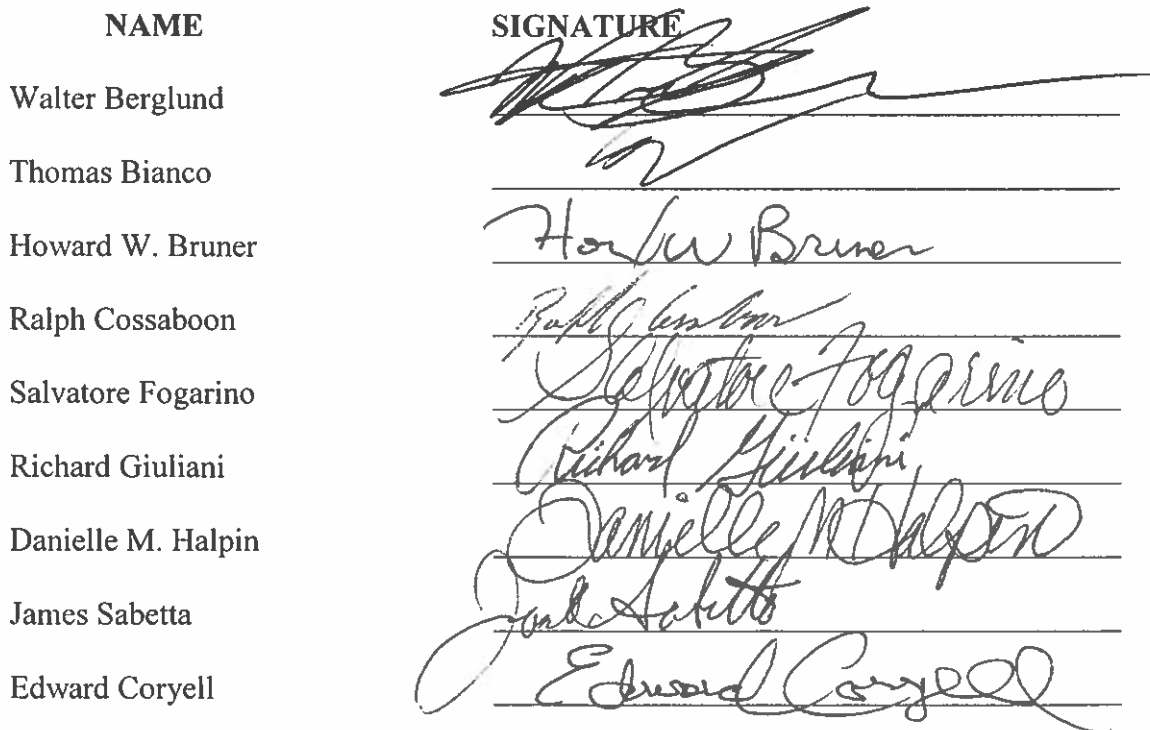 NAME SIGNATURE
Walter Berglund
Thomas Bianco
Howard W. Bruner How W Bruner
Ralph Cossaboon
Salvatore Fogarino Salvatore Fogarino
Richard Giuliani Richard Giuliani
Danielle M. Halpin Danielle M Halpin
James Sabetta Sabetta
Edward Coryell Edward Coryell